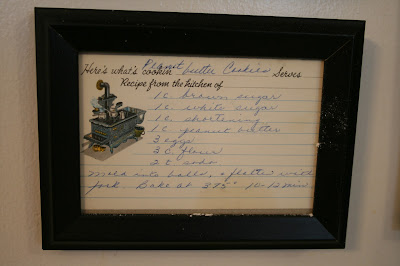 Here's what's cookin' Peanut butter Cookies Serves
Recipe from the kitchen of
1 c. brown sugar
1 c. white sugar
1 c. shortening
1 c. peanut butter
3 eggs
3 c. flour
2 t. soda
Mold into balls, & flatten with
fork. Bake at 375° 10-12 min.